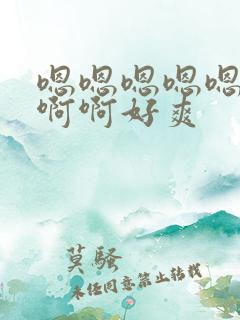 嗯嗯嗯嗯嗯
啊啊好爽
莫骚
未经同意禁止转载